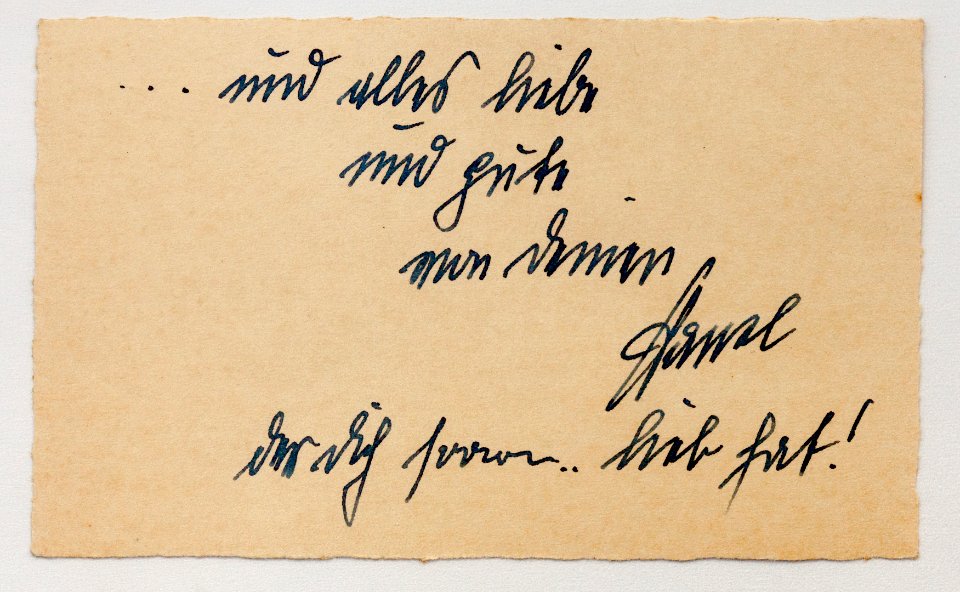 ... und alles liebe
und gute
von deinem
der dich soooo.. lieb hat!